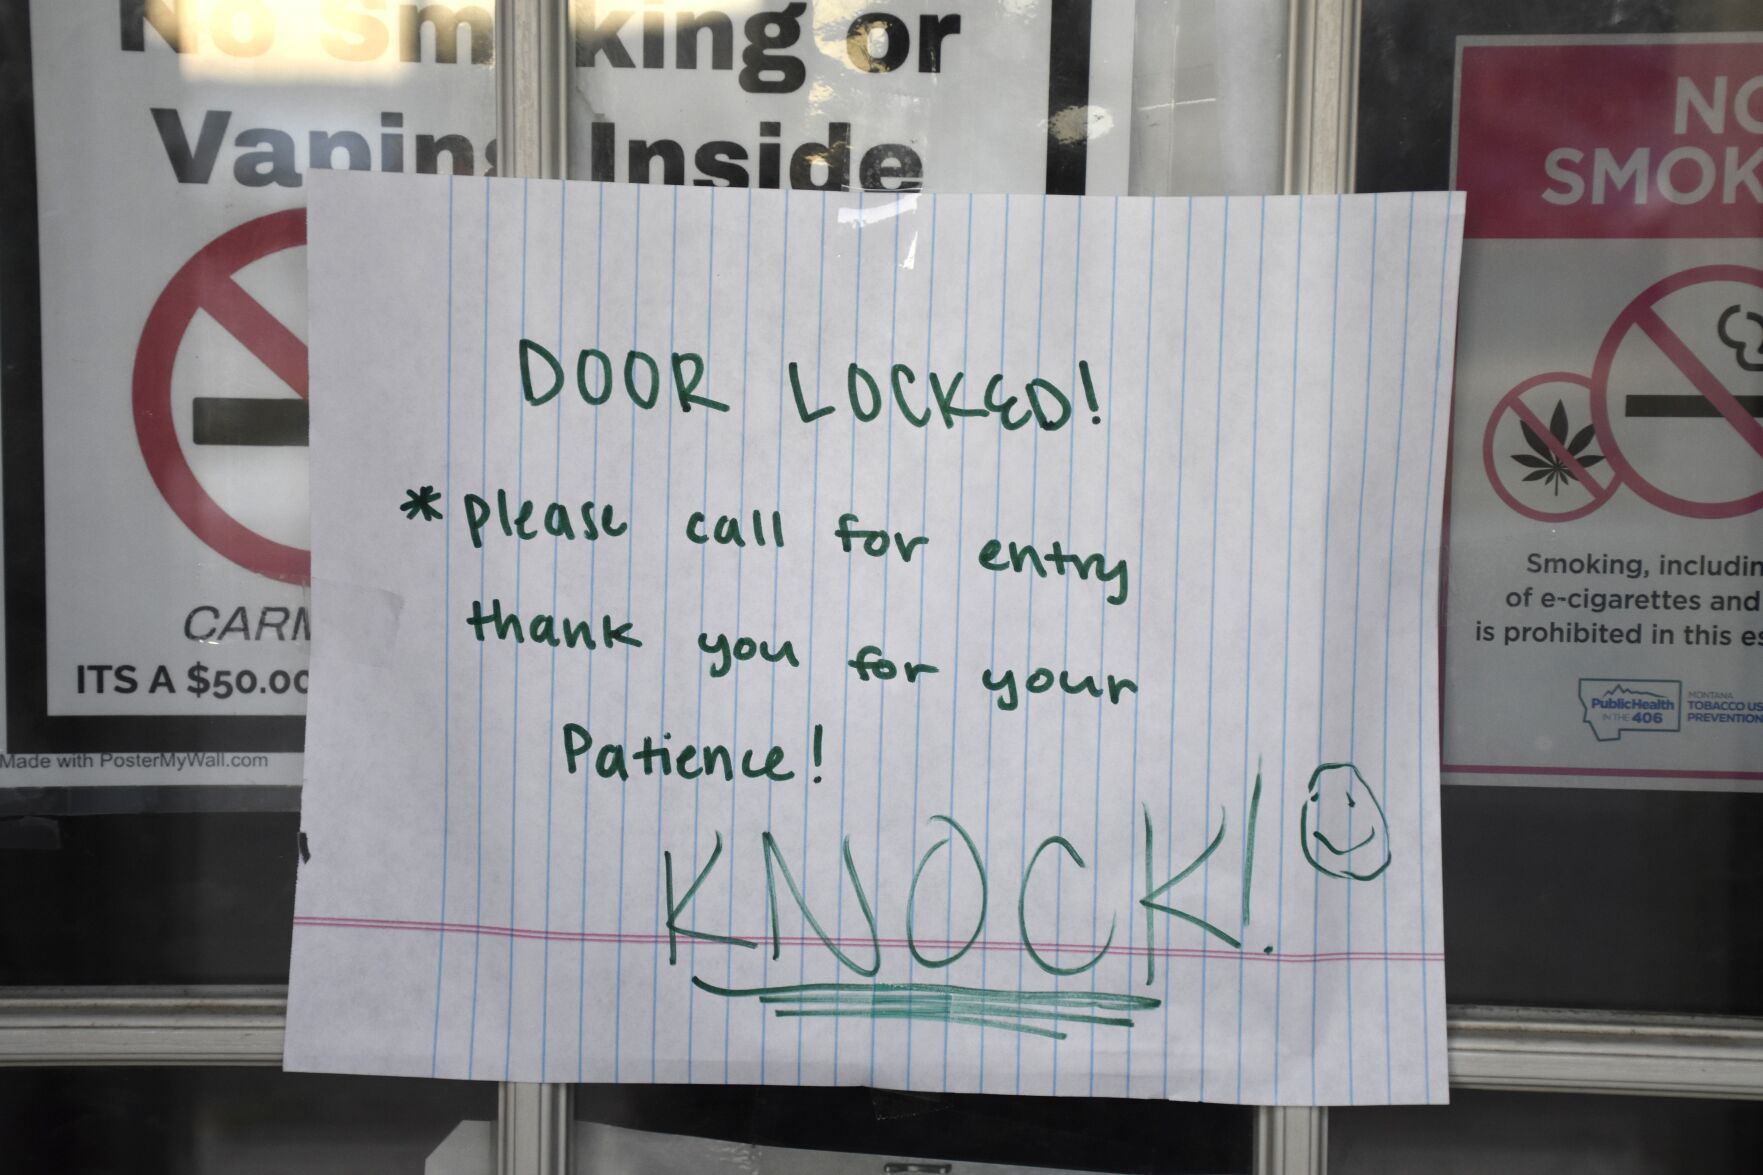 No Smoking or
Vaping Inside
ITS A $50.00
Made with PosterMyWall.com
DOOR LOCKED!
*please call for entry
thank you for your
Patience!
KNOCK!
NO
SMOK
Smoking, includin
of e-cigarettes and
is prohibited in this es
PublicHealth
IN THE 406
MONTANA
TOBACCO US
PREVENTION